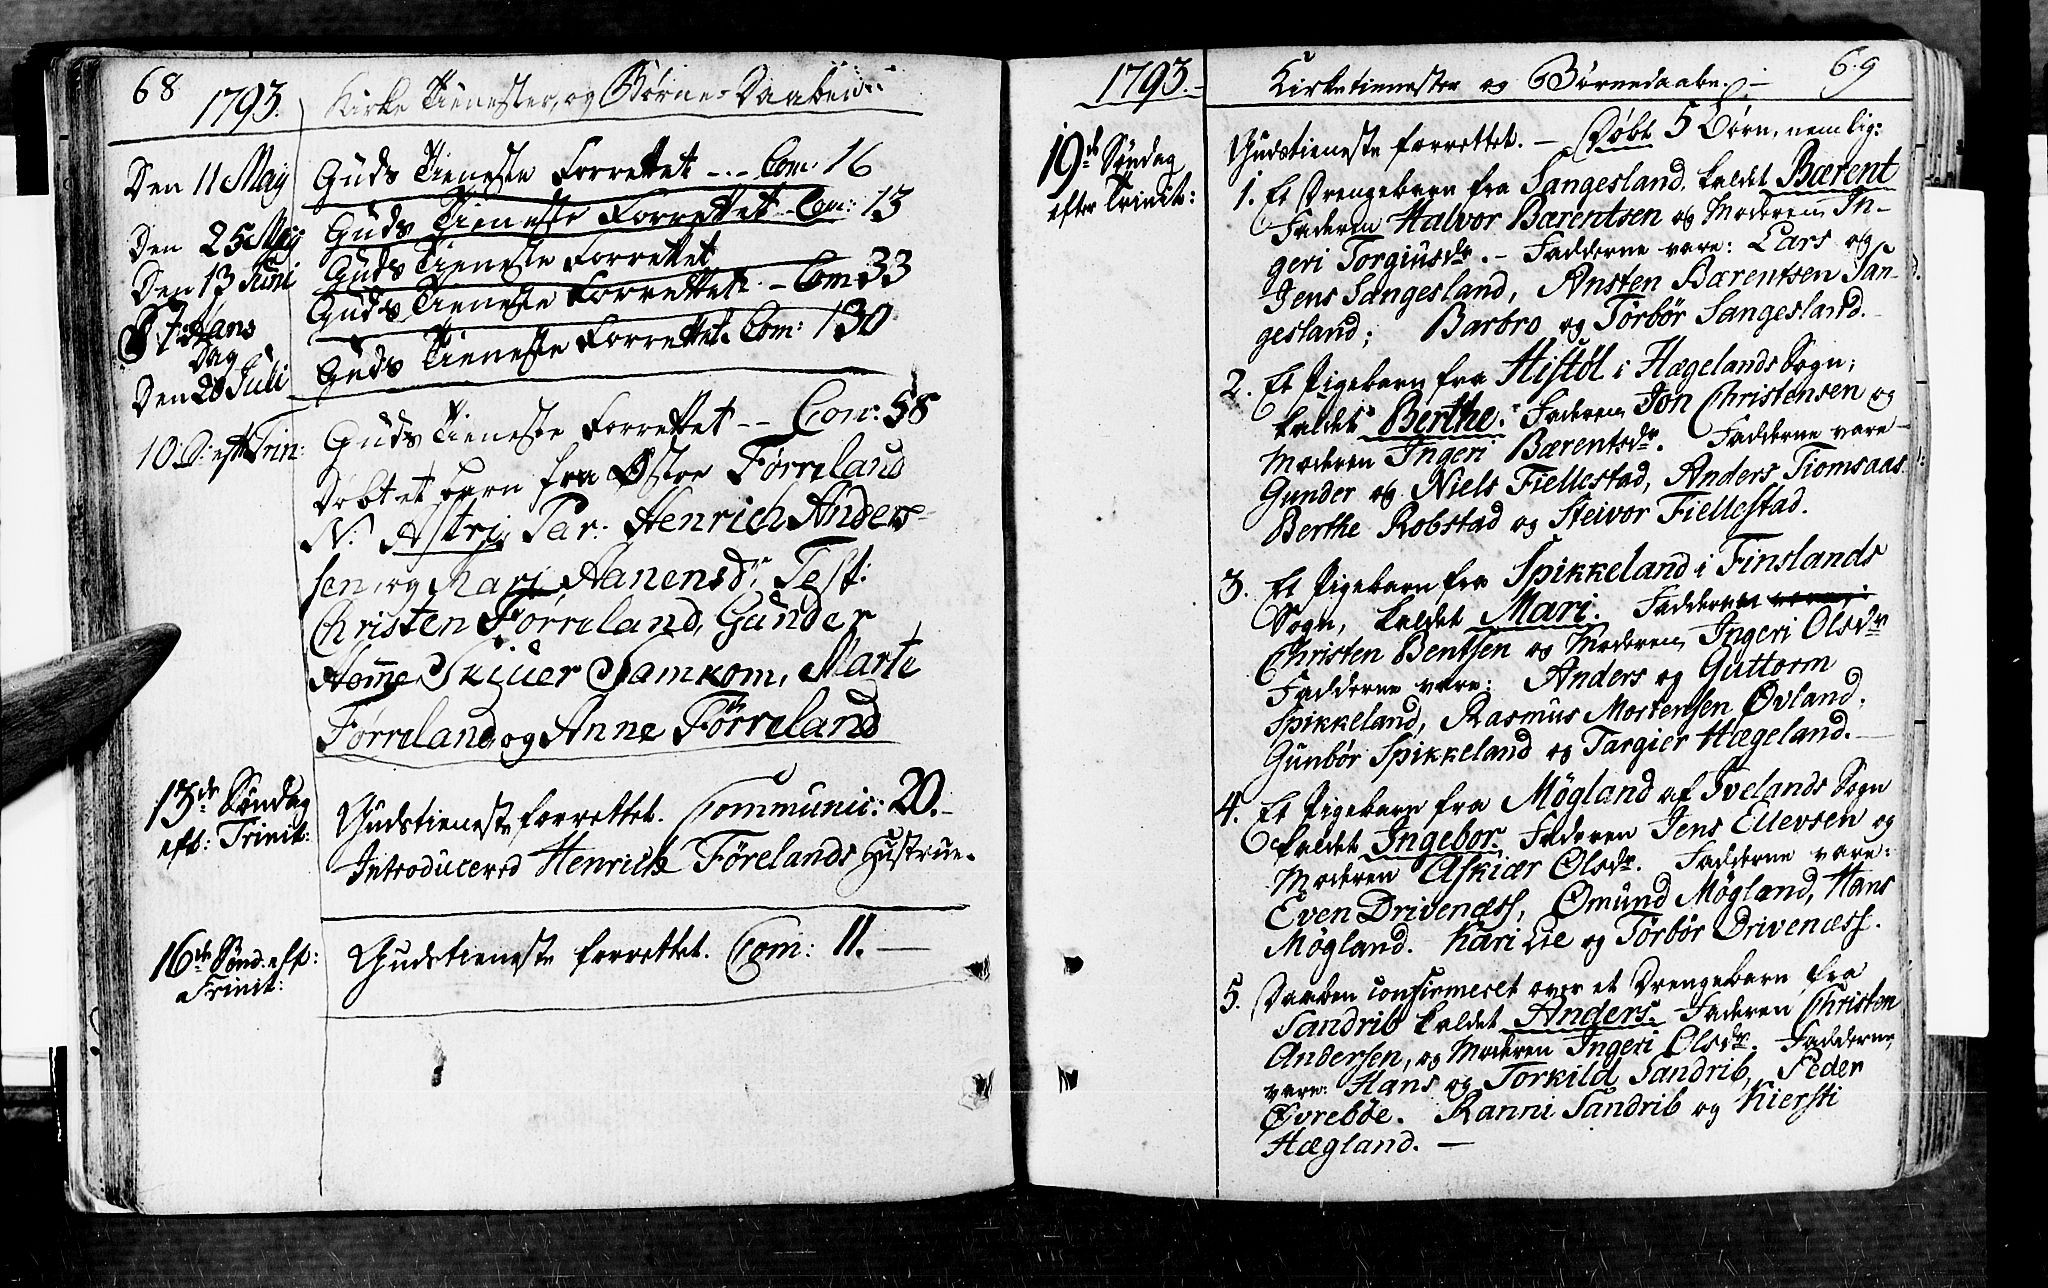 68
1793.
Kirke Tienester, og Børne-Daaben
Den 11 May
Guds Tieneste Forrettet --- Com: 16
Den 25 May
Guds Tieneste Forrettet - Com: 13
Den 13 Juni
Guds Tieneste Forrettet
St. Hans
Dag
Guds Tieneste Forrettet. - Com 33
Den 28 Juli
Guds Tieneste Forrettet. Com: 130
10. S: eft Trin:
Guds Tieneste Forrettet -- Com: 58
Døbt et barn fra Østre Førreland
N: Astri, Par: Henrich Anders-
sen, og Mari Aanensdr, Test:
Christen Førreland, Gunder
Homme Skiuer Stamkom, Marte
Førreland og Anne Førreland
13de Søndag
eft: Trinit:
Gudstieneste forrettet. Communic: 20.-
Introducered Henrich Førelands Hustrue.
16de Sønd. eft:
Trinit:
Gudstieneste forrettet. Com: 11. —
1793.
Kirketienester og Børnedaabe. —
69
19de Søndag
efter Trinit:
Gudstieneste forrettet. — Døbt 5 Børn, nemlig:
1. Et Drengebarn fra Sangesland, kaldet Bærent
Faderen Halvor Bærentsen og Moderen In-
geri Torgiusdr. - Fadderne vare: Lars og
Jens Sangesland, Ansten Bærentsen San-
gesland; Barbro og Tørbør Sangesland.
2. Et Pigebarn fra Histøl i Hægelands Sogn;
kaldet Berthe. Faderen Jon Christensen og
Moderen Ingeri Bærentsdr. Fadderne vare
Gunder og Niels Fiellestad, Anders Tiomsaas
Berthe Robstad og Steivor Fiellestad.
3. Et Pigebarn fra Spikkeland i Finslands
Sogn, kaldet Mari. Fadderne vare:
Christen Bentsen og Moderen Ingeri Olsdr
Fadderne vare: Anders og Guttorm
Spikkeland, Rasmus Mortensen Øvland.
Gunbør Spikkeland og Targier Hægeland. —
4. Et Pigebarn fra Møgland af Ivelands Sogn
kaldet Ingebor. Faderen Jens Ellevsen og
Moderen Askiær Olsdr. Fadderne vare:
Even Drivenæss, Omund Møgland, Hans
Møgland. Kari Lie og Tørbør Drivenæss.
5. Daaben confirmeret over et Drengebarn fra
Sandrib kaldet Anders. Faderen Christen
Andersen, og Moderen Ingeri Olsdr. Fadderne
vare: Hans og Torkild Sandrib, Peder
Øvrebøe. Ranni Sandrib og Kiersti
Hægland. —